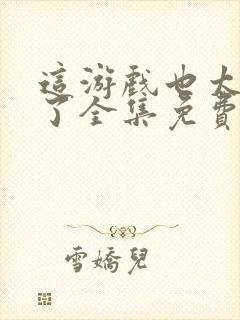 這游戲也太
了全集免費
雪嬌兒